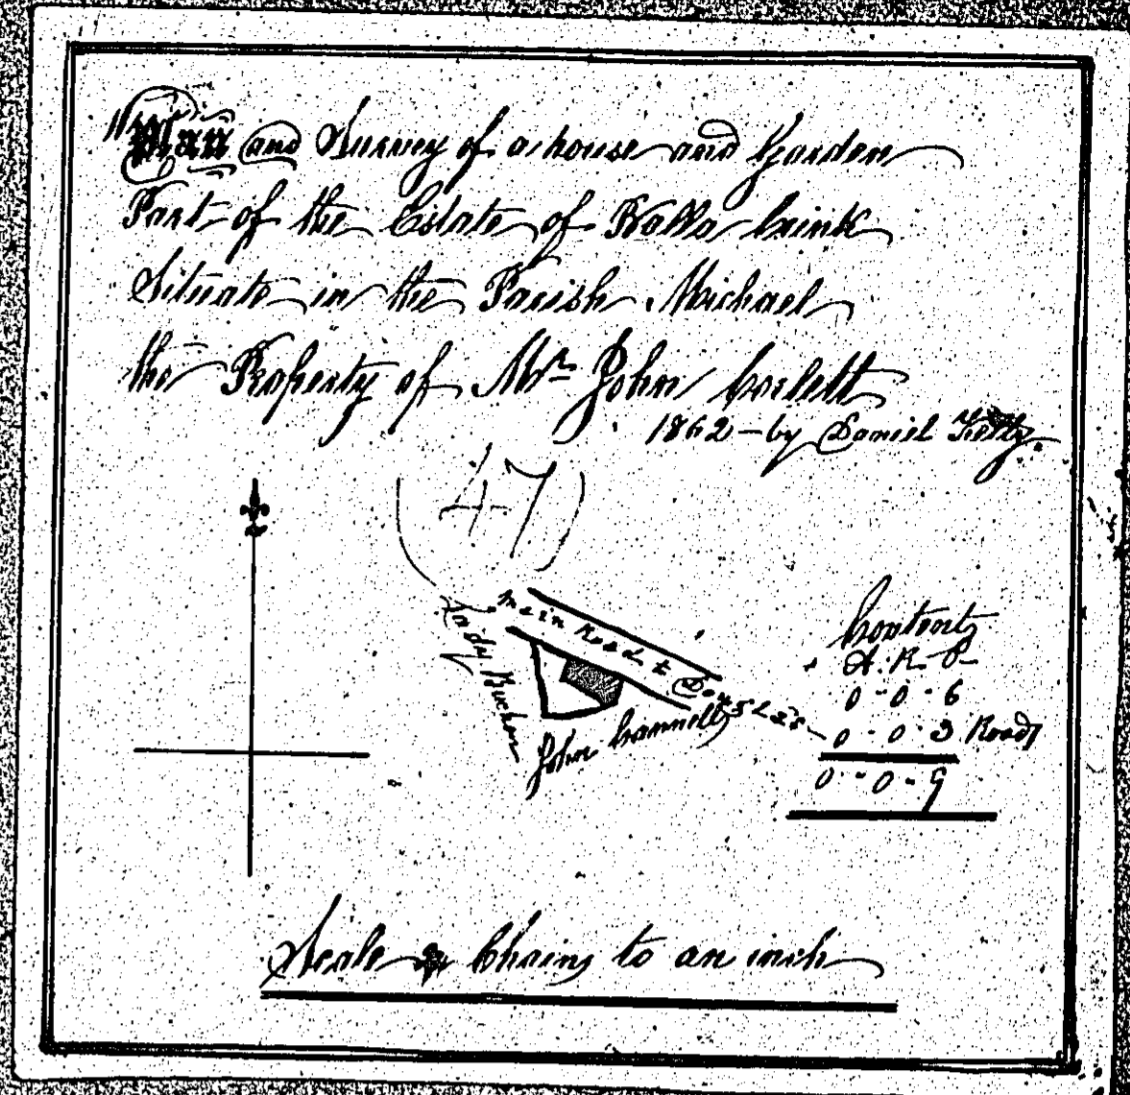 Plan and Survey of a house and Garden
Part of the Estate of Balla Crink
Situate in the Parish Michael
the Property of Mr John Corlett
1862 - by Daniel Kelly.
(47)
Main Road to Douglas
Lady Buchan
John Cannell
Contents
A. R. P
0 - 0 - 6
0 - 0 - 3 Road
0 - 0 - 9
Scale Chains to an inch